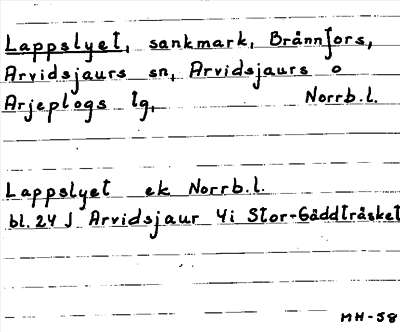 Lappslyet, sankmark, Brännfors,
Arvidsjaurs sn, Arvidsjaurs o
Arjeplogs tg, Norrb.l.
Lappslyet ek Norrb.l.
bl. 24 J Arvidsjaur 4i Stor-Gäddträsket
MH-58